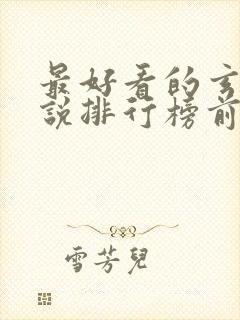 最好看的玄
说排行榜前
雪芳兒